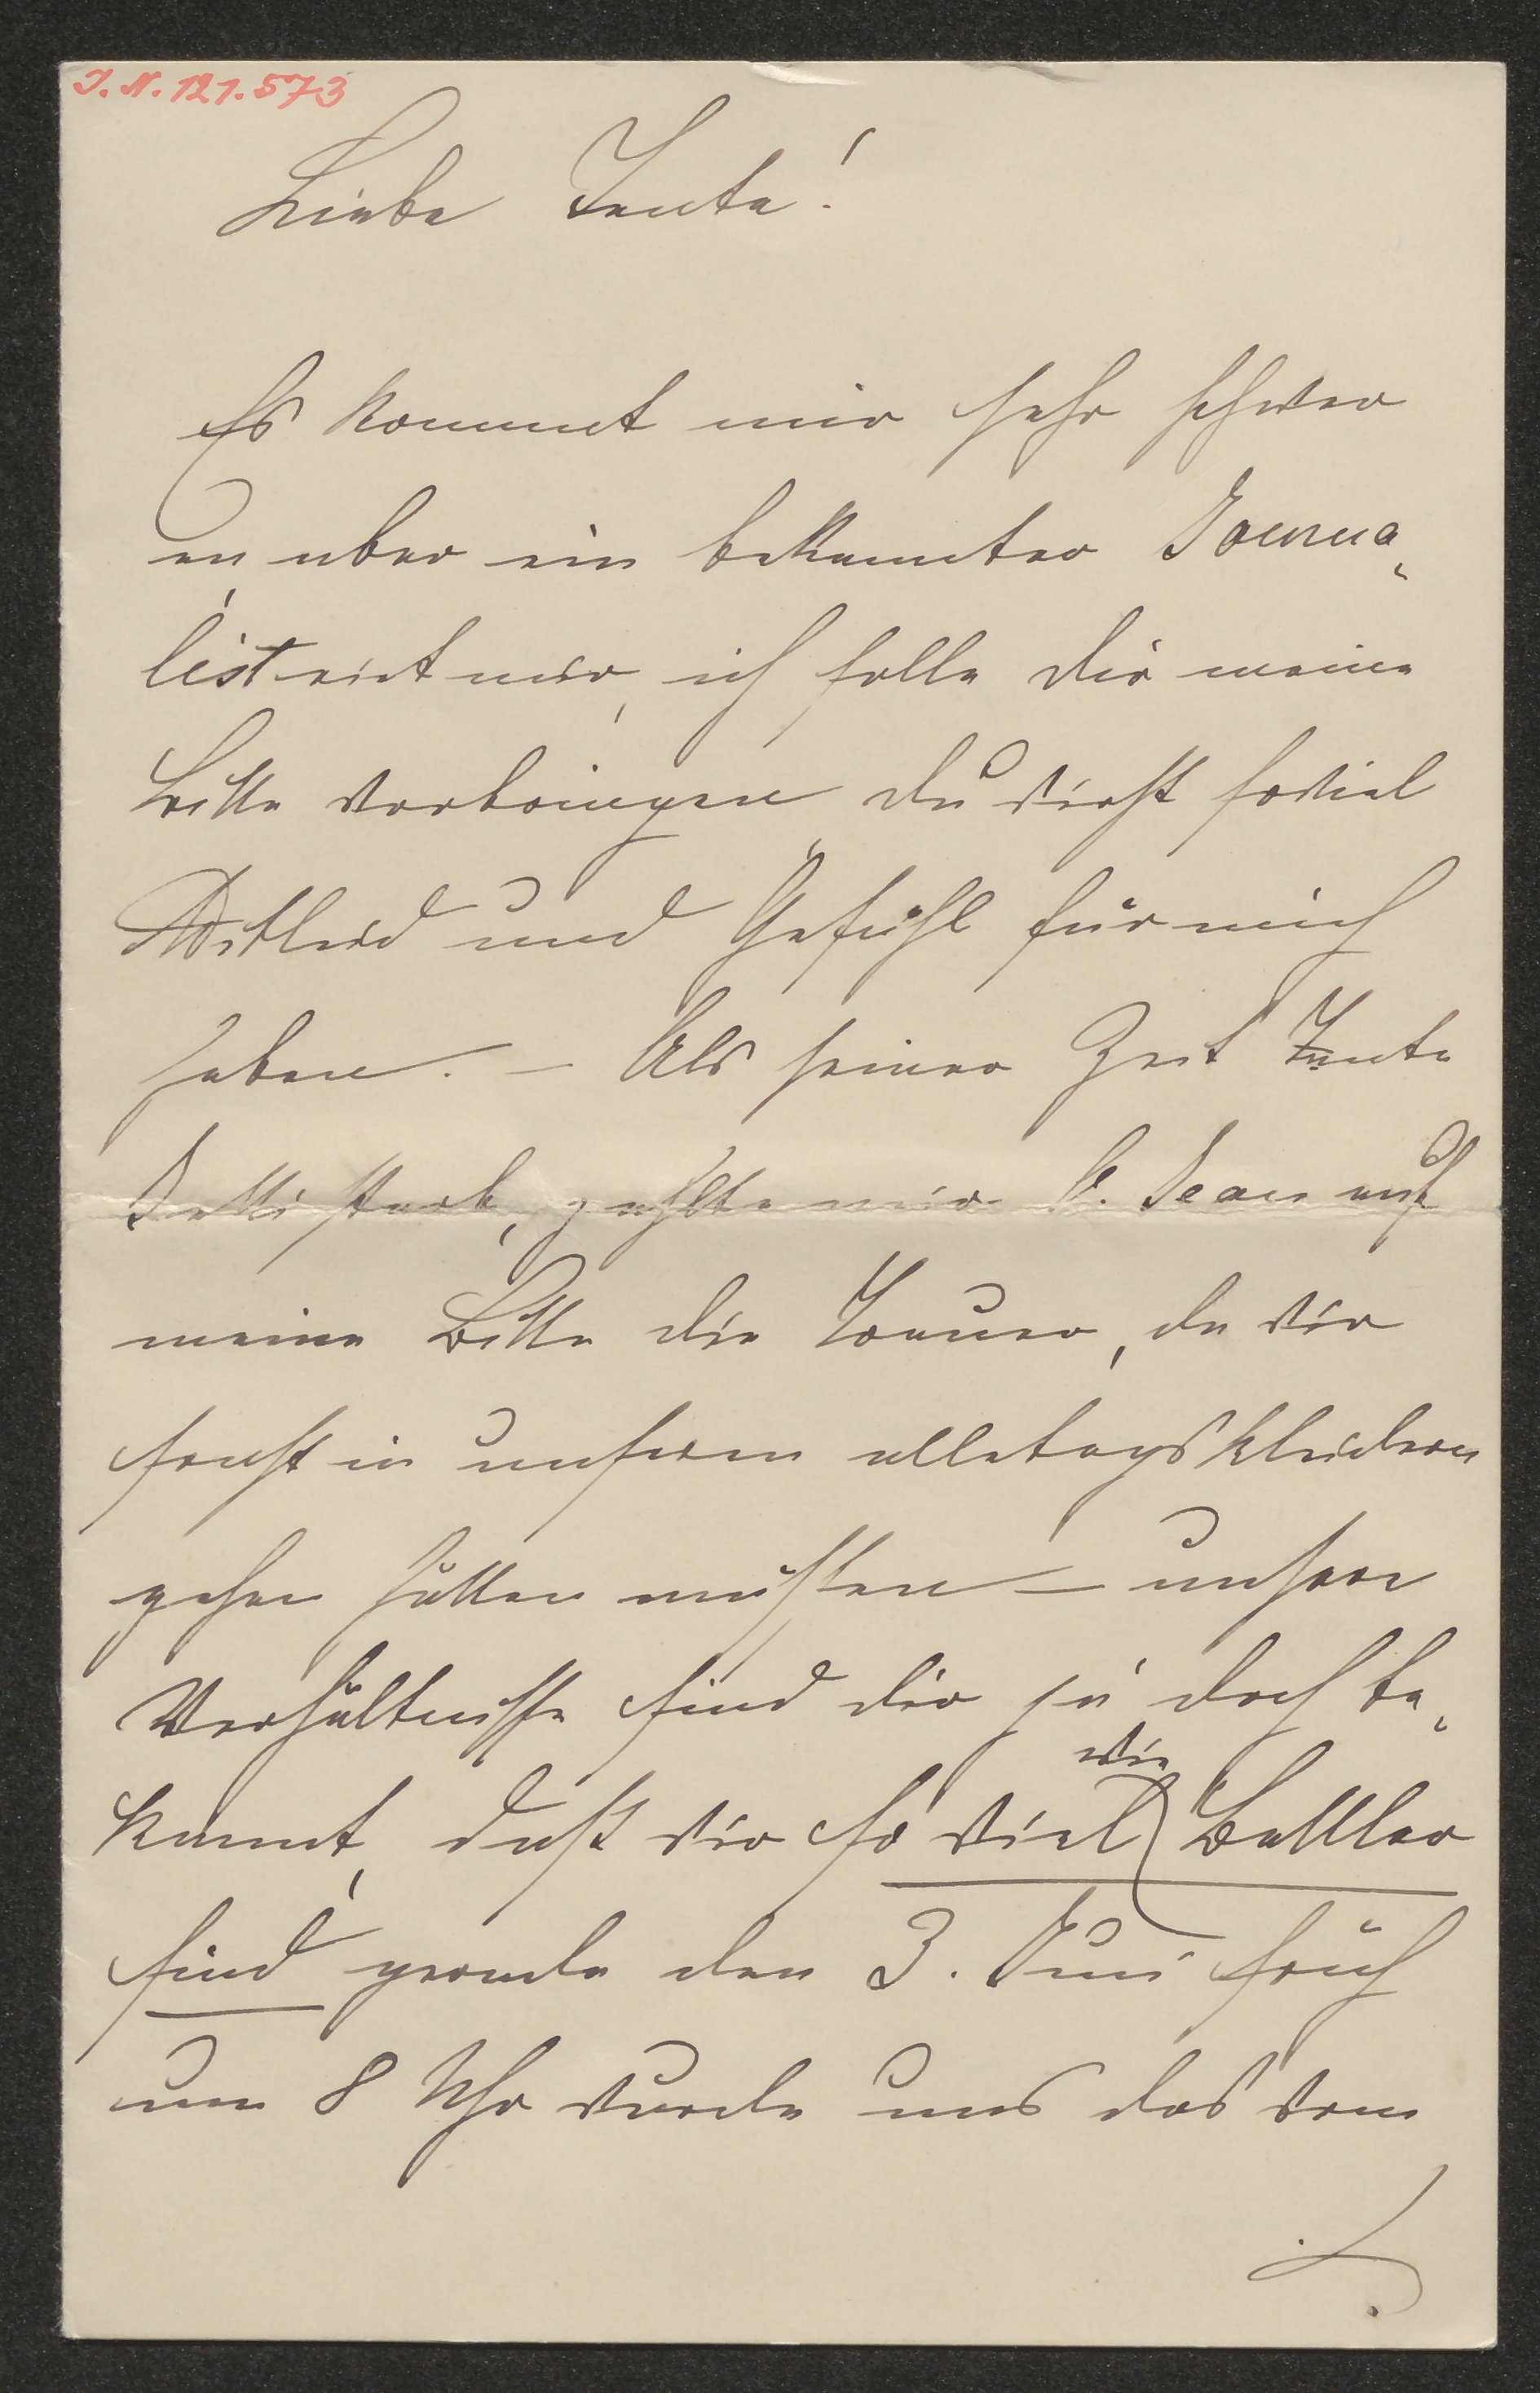 I. N. 121.573
Liebe Tante!
Es kommt mir sehr schwer
an, aber ein bekannter Journa„
list riet mir, ich solle dir meine
Bitte vorbringen, du wirst soviel
Mitleid und Gefühl für mich
haben. – Als seiner Zeit Tante
Netti starb, zahlte mir H. Jean auf
meine Bitte die Trauer, da wir
sonst in unseren alletagskleidern
gehen hätten müssen – unsere
Verhältnisse sind dir ja doch be„
kannt, daß wir so viel wie Bettler
sind grade den 3. Juni früh
um 8 Uhr wurde uns das vom